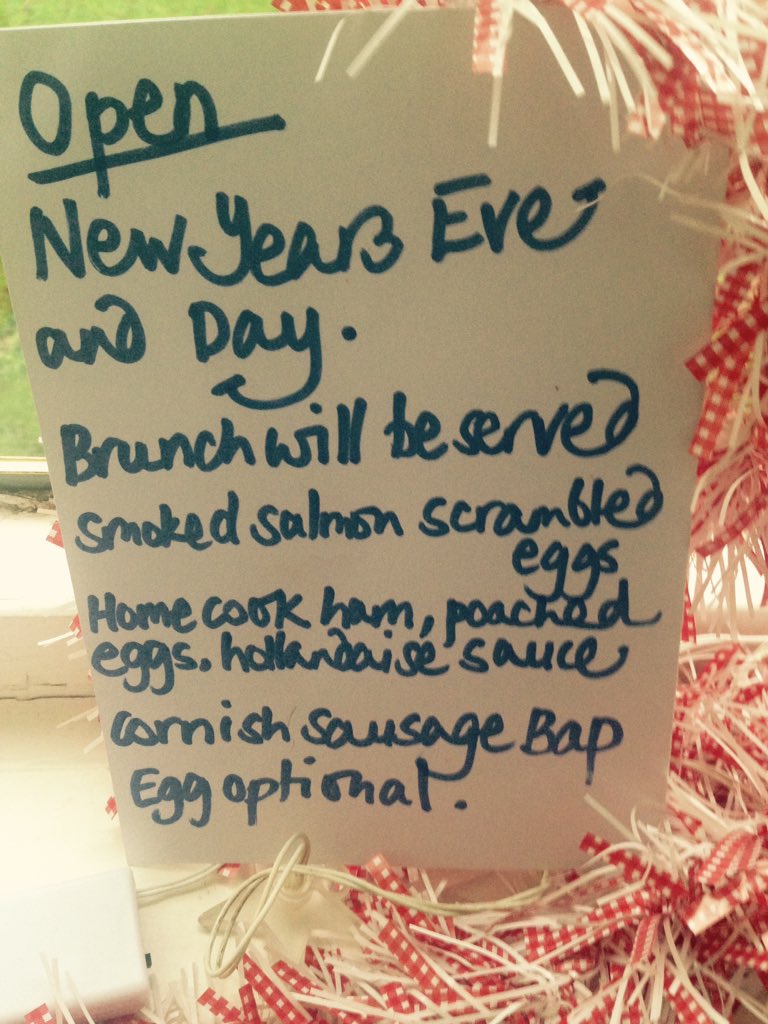 Open
New Years Eve
and Day.
Brunch will be served
smoked salmon scrambled
eggs
Home cook ham, poached
eggs. hollandaise sauce
Cornish sausage Bap
Egg optional.